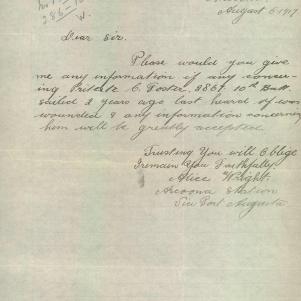 August 6. 1917.
Dear Sir.
Please would you give
me any information if any concer-
ning Private C. Foster. 286. 10th Batt.
sailed 2 years ago last heard of was
wounded & any information concerning
him will be greatly accepted.
Trusting You will Oblige
I remain You Faithfully.
Alice Wright.
Arcoona Station
Via Port Augusta